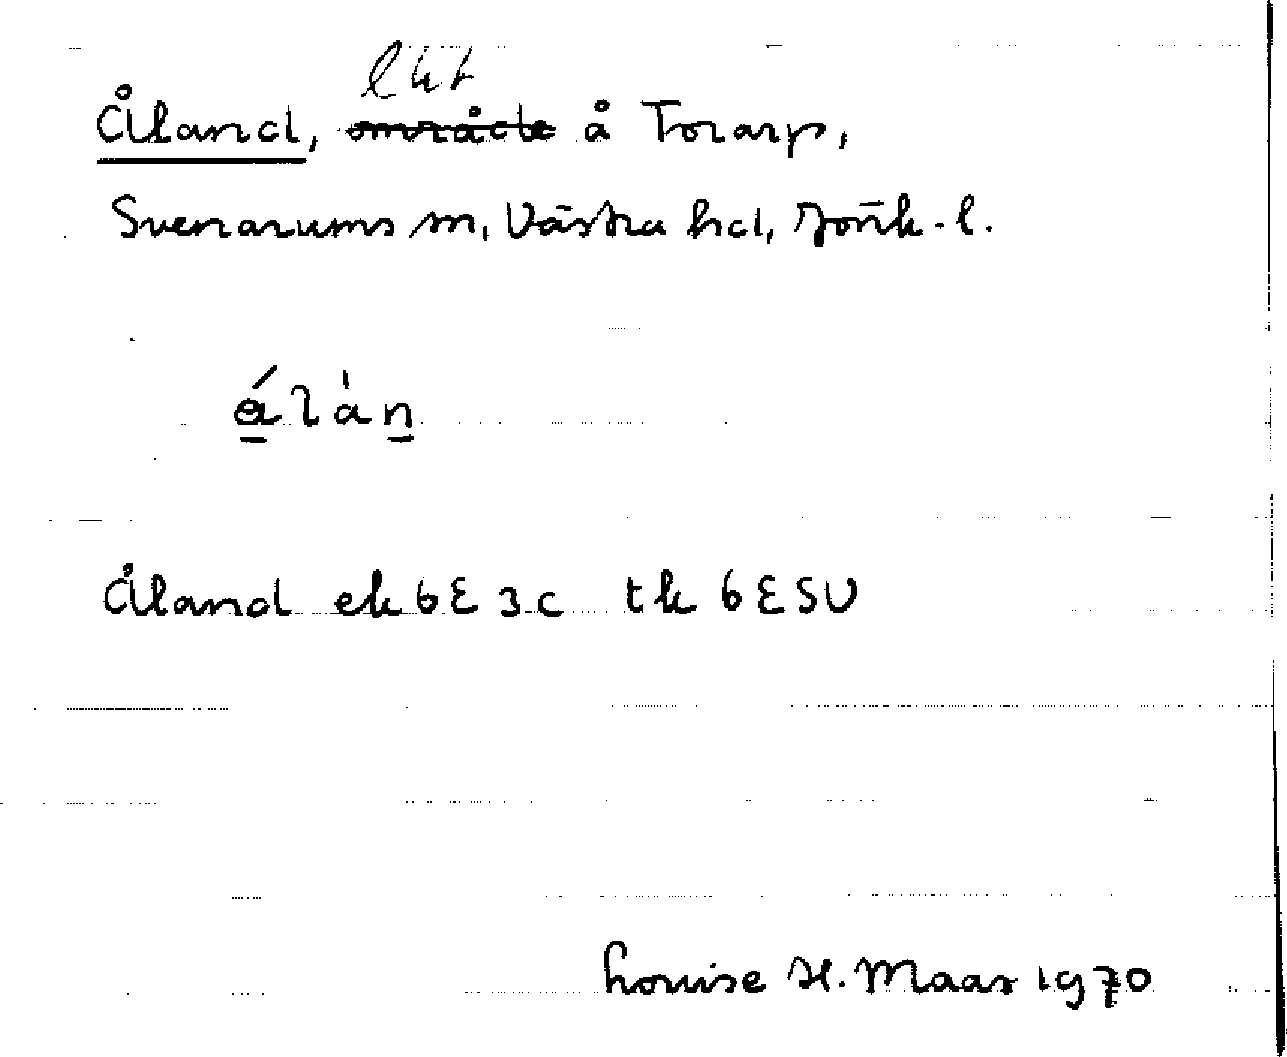 lht
Åland, område å Torarp,
Svenarums sn, Västra hd, Jönk. l.
Åland ek 6E 3c tk 6E SV
Louise H. Maas 1970